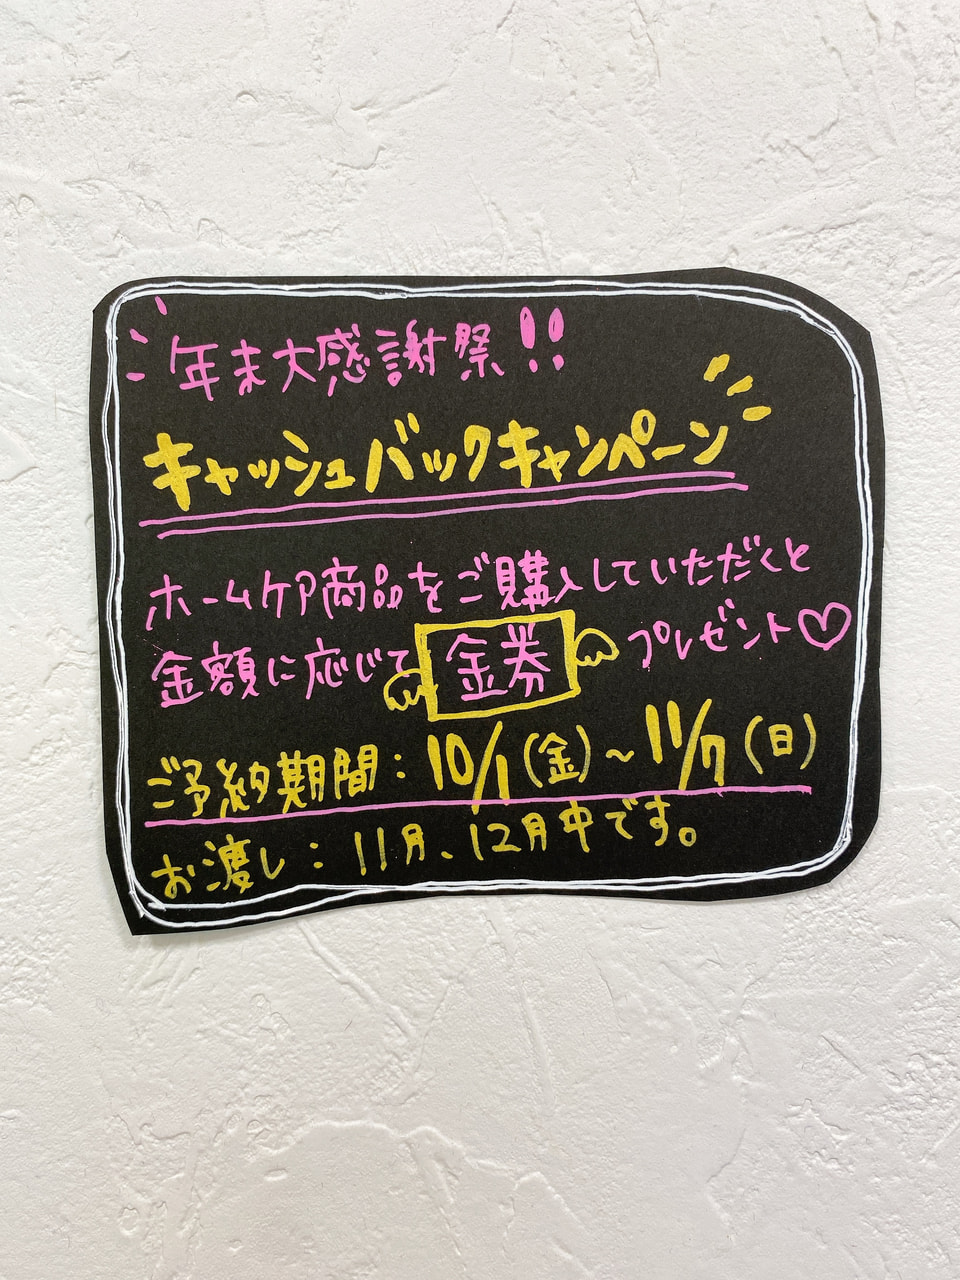 年末大感謝祭!!
キャッシュバックキャンペーン
ホームケア商品をご購入していただくと
金額に応じて 金券 プレゼント♡
ご予約期間：10/1(金)～11/7(日)
お渡し：11月、12月中です。